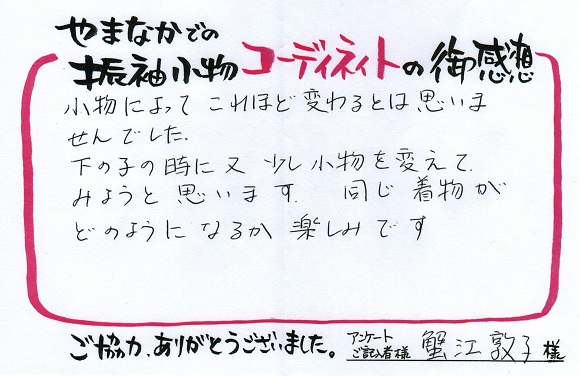 やまなかでの
振袖小物コーディネイトの御感想
小物によって これほど変わるとは思いま
せんでした.
下の子の時に又 少し小物を変えて
みようと思います. 同じ着物が
どのようになるか 楽しみです
ご協力、ありがとうございました。 アンケート
ご記入者様 蟹江敦子様